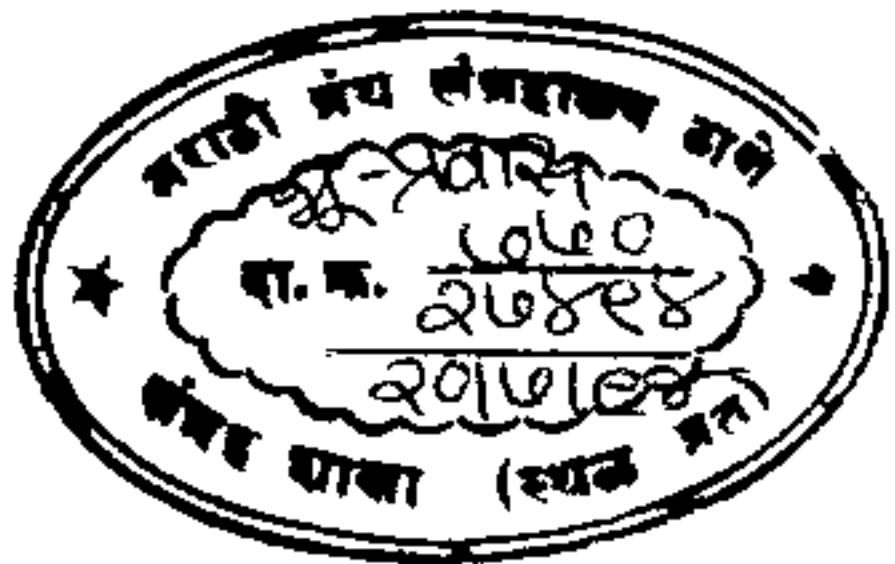 मराठी ग्रंथ संग्रहालय ठाणे
भू-प्रवास
दा. क्र. ७७०
२७४९४
२०|७|९४
संग्रह शाखा (स्थळ प्रत)